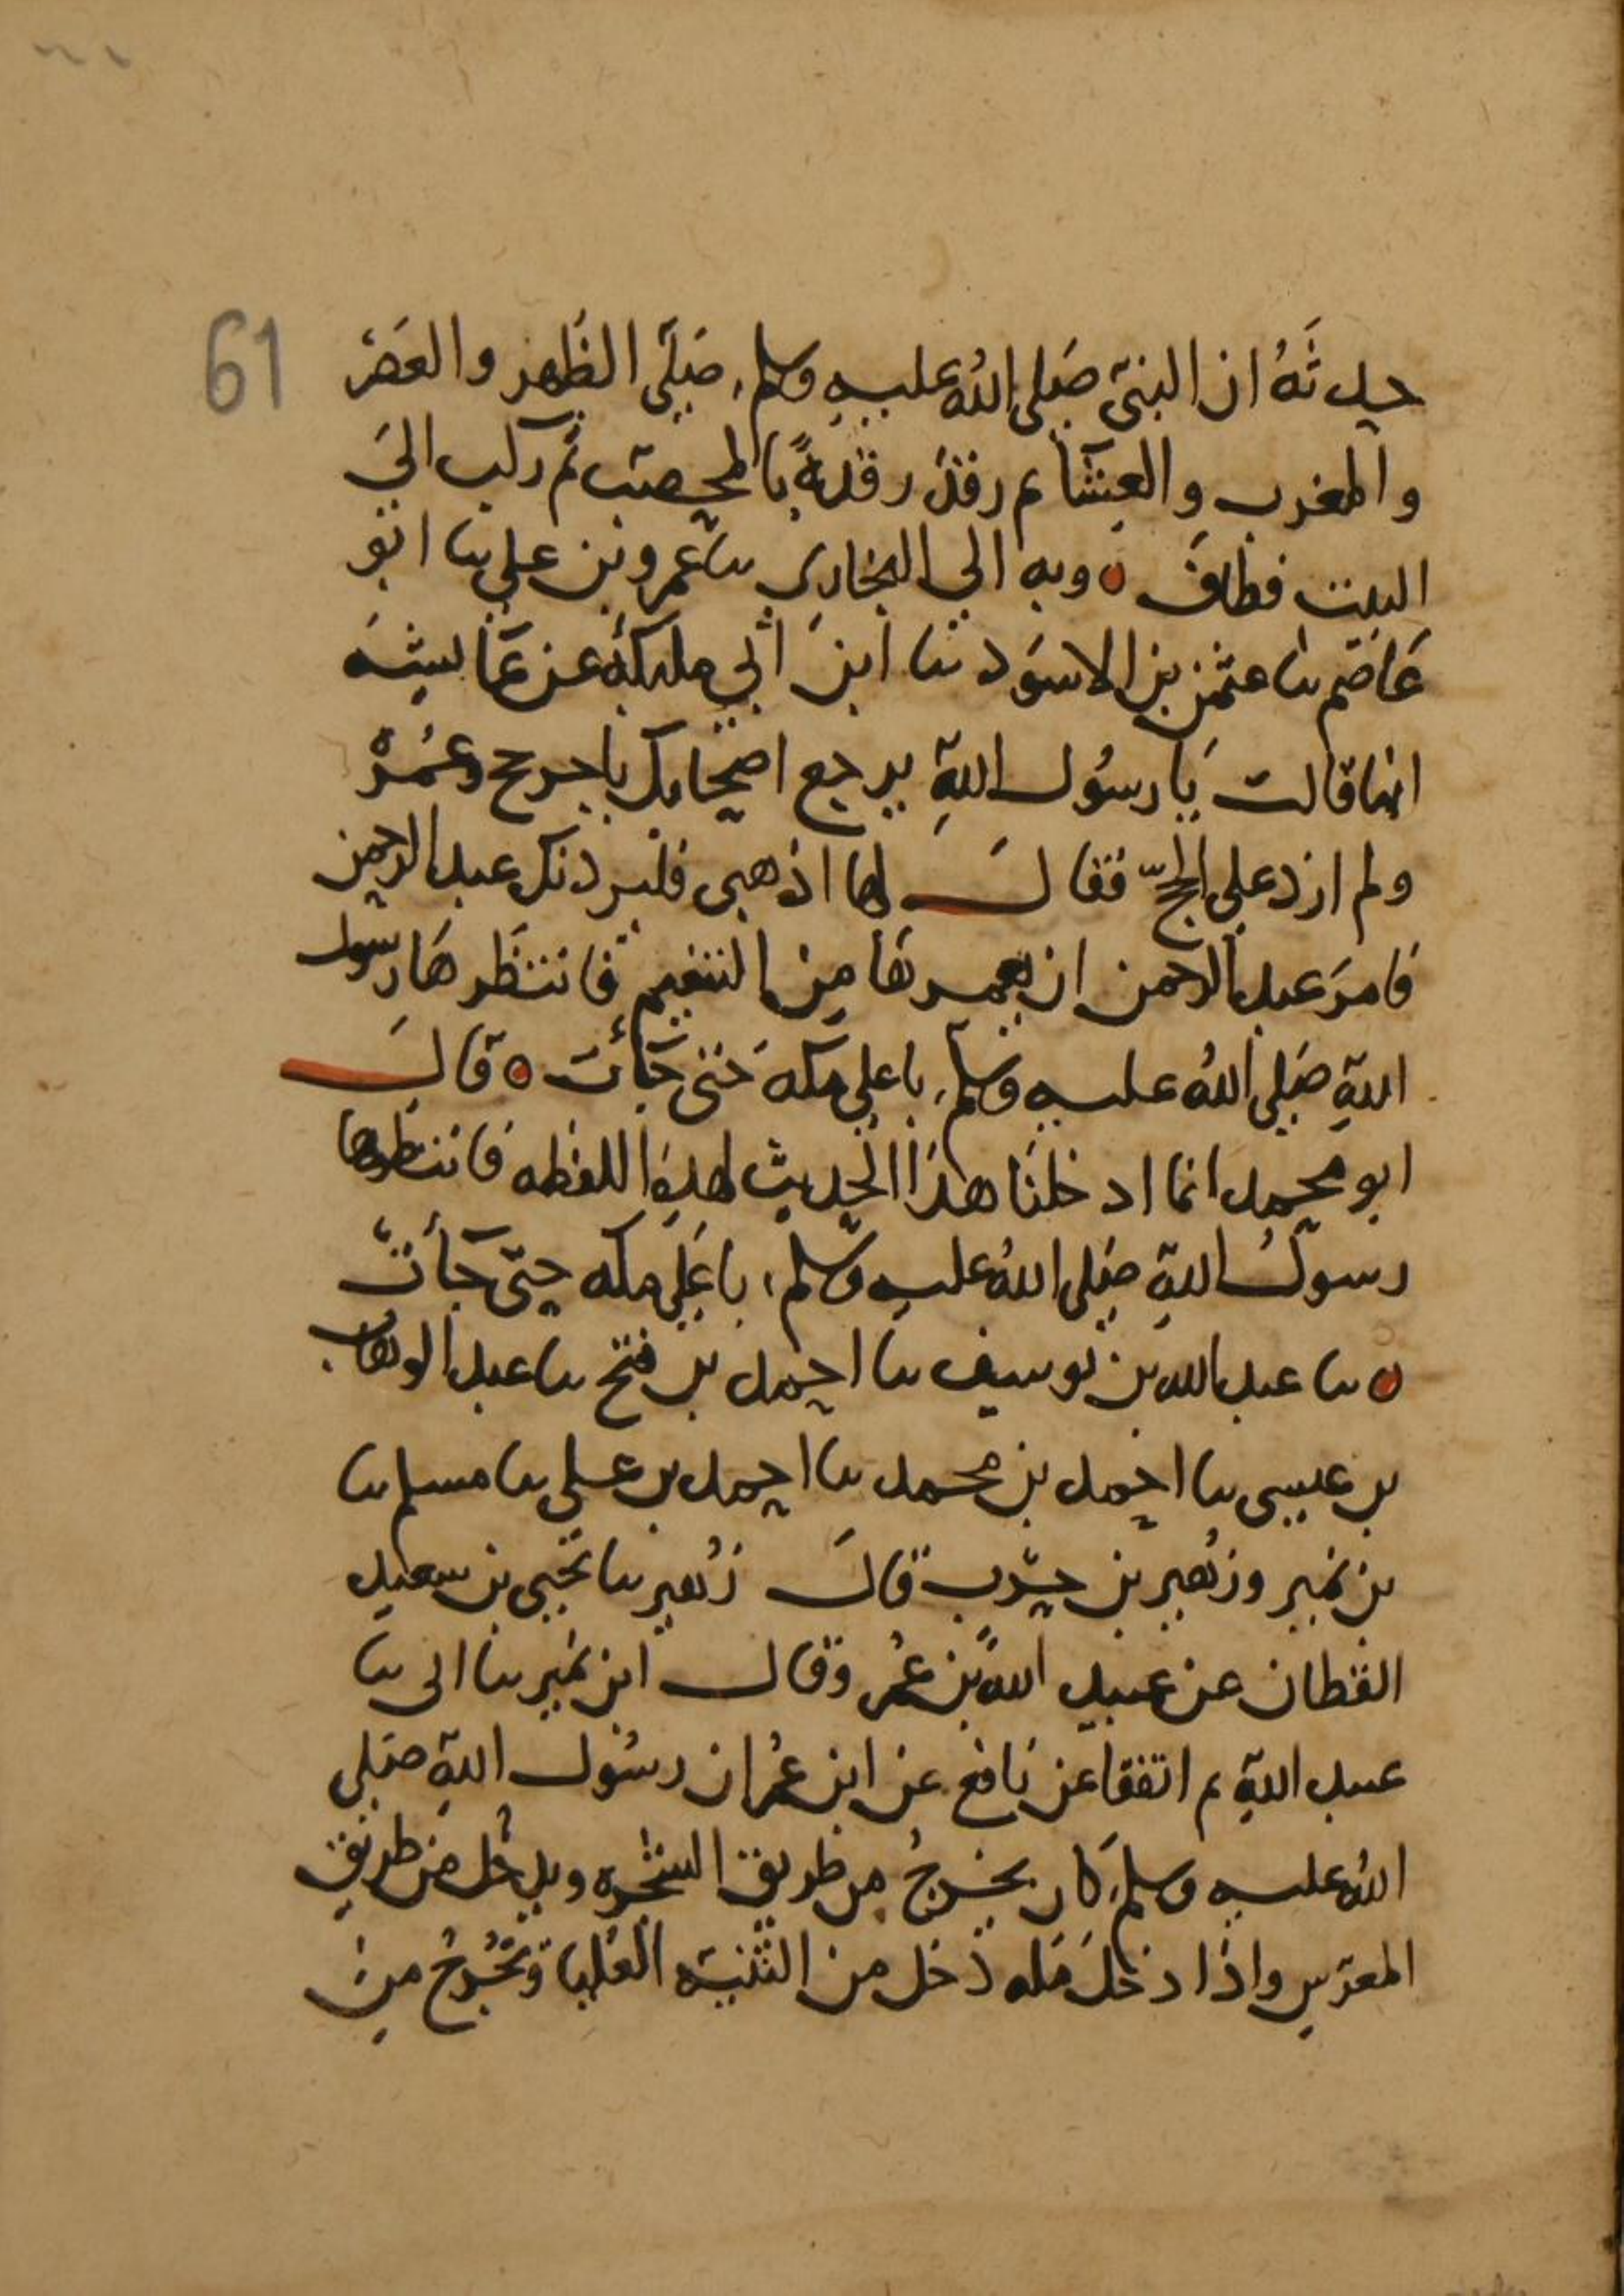 61
حدثه ان النبي صلى الله عليه وسلم، صلى الظهر والعصر
والمغرب والعشآ ثم رقد رقدةً بالمحصب ثم ركب الى
البيت فطاف ٥ وبه الي البخاري نا عمرو بن علي نا ابو
عاصم نا عثمن بن الاسود نا ابن ابي مليكة عن عايشه
انها قالت يا رسول الله يرجع اصحابك باجر حج وعمرة
ولم ازد علي الحج فقال لها اذهبي فليردفك عبد الرحمن
فامر عبد الرحمن ان يعمرها من التنعيم فانتظرها رسول
الله صلى الله عليه وسلم، باعلي مكه حتى جأت ٥ قال
ابو محمد انما ادخلنا هذا الحديث لهذه اللفظه فانتظرها
رسول الله صلى الله عليه وسلم، باعلي مكه حتى جأت
٥ نا عبد الله بن يوسف نا احمد بن فتح نا عبد الوهاب
بن عيسى نا احمد بن محمد نا احمد بن علي نا مسلم نا
بن نمير وزهير بن حرب قال زهير نا يحيى بن سعيد
القطان عن عبيد الله بن عمر وقال ابن نمير نا ابى نا
عبيد الله ثم اتفقا عن نافع عن ابن عمر ان رسول الله صلى
الله عليه وسلم، كان يخرج من طريق الشجره ويدخل من طريق
المعرس واذا دخل مكه دخل من الثنيه العليا ويخرج من